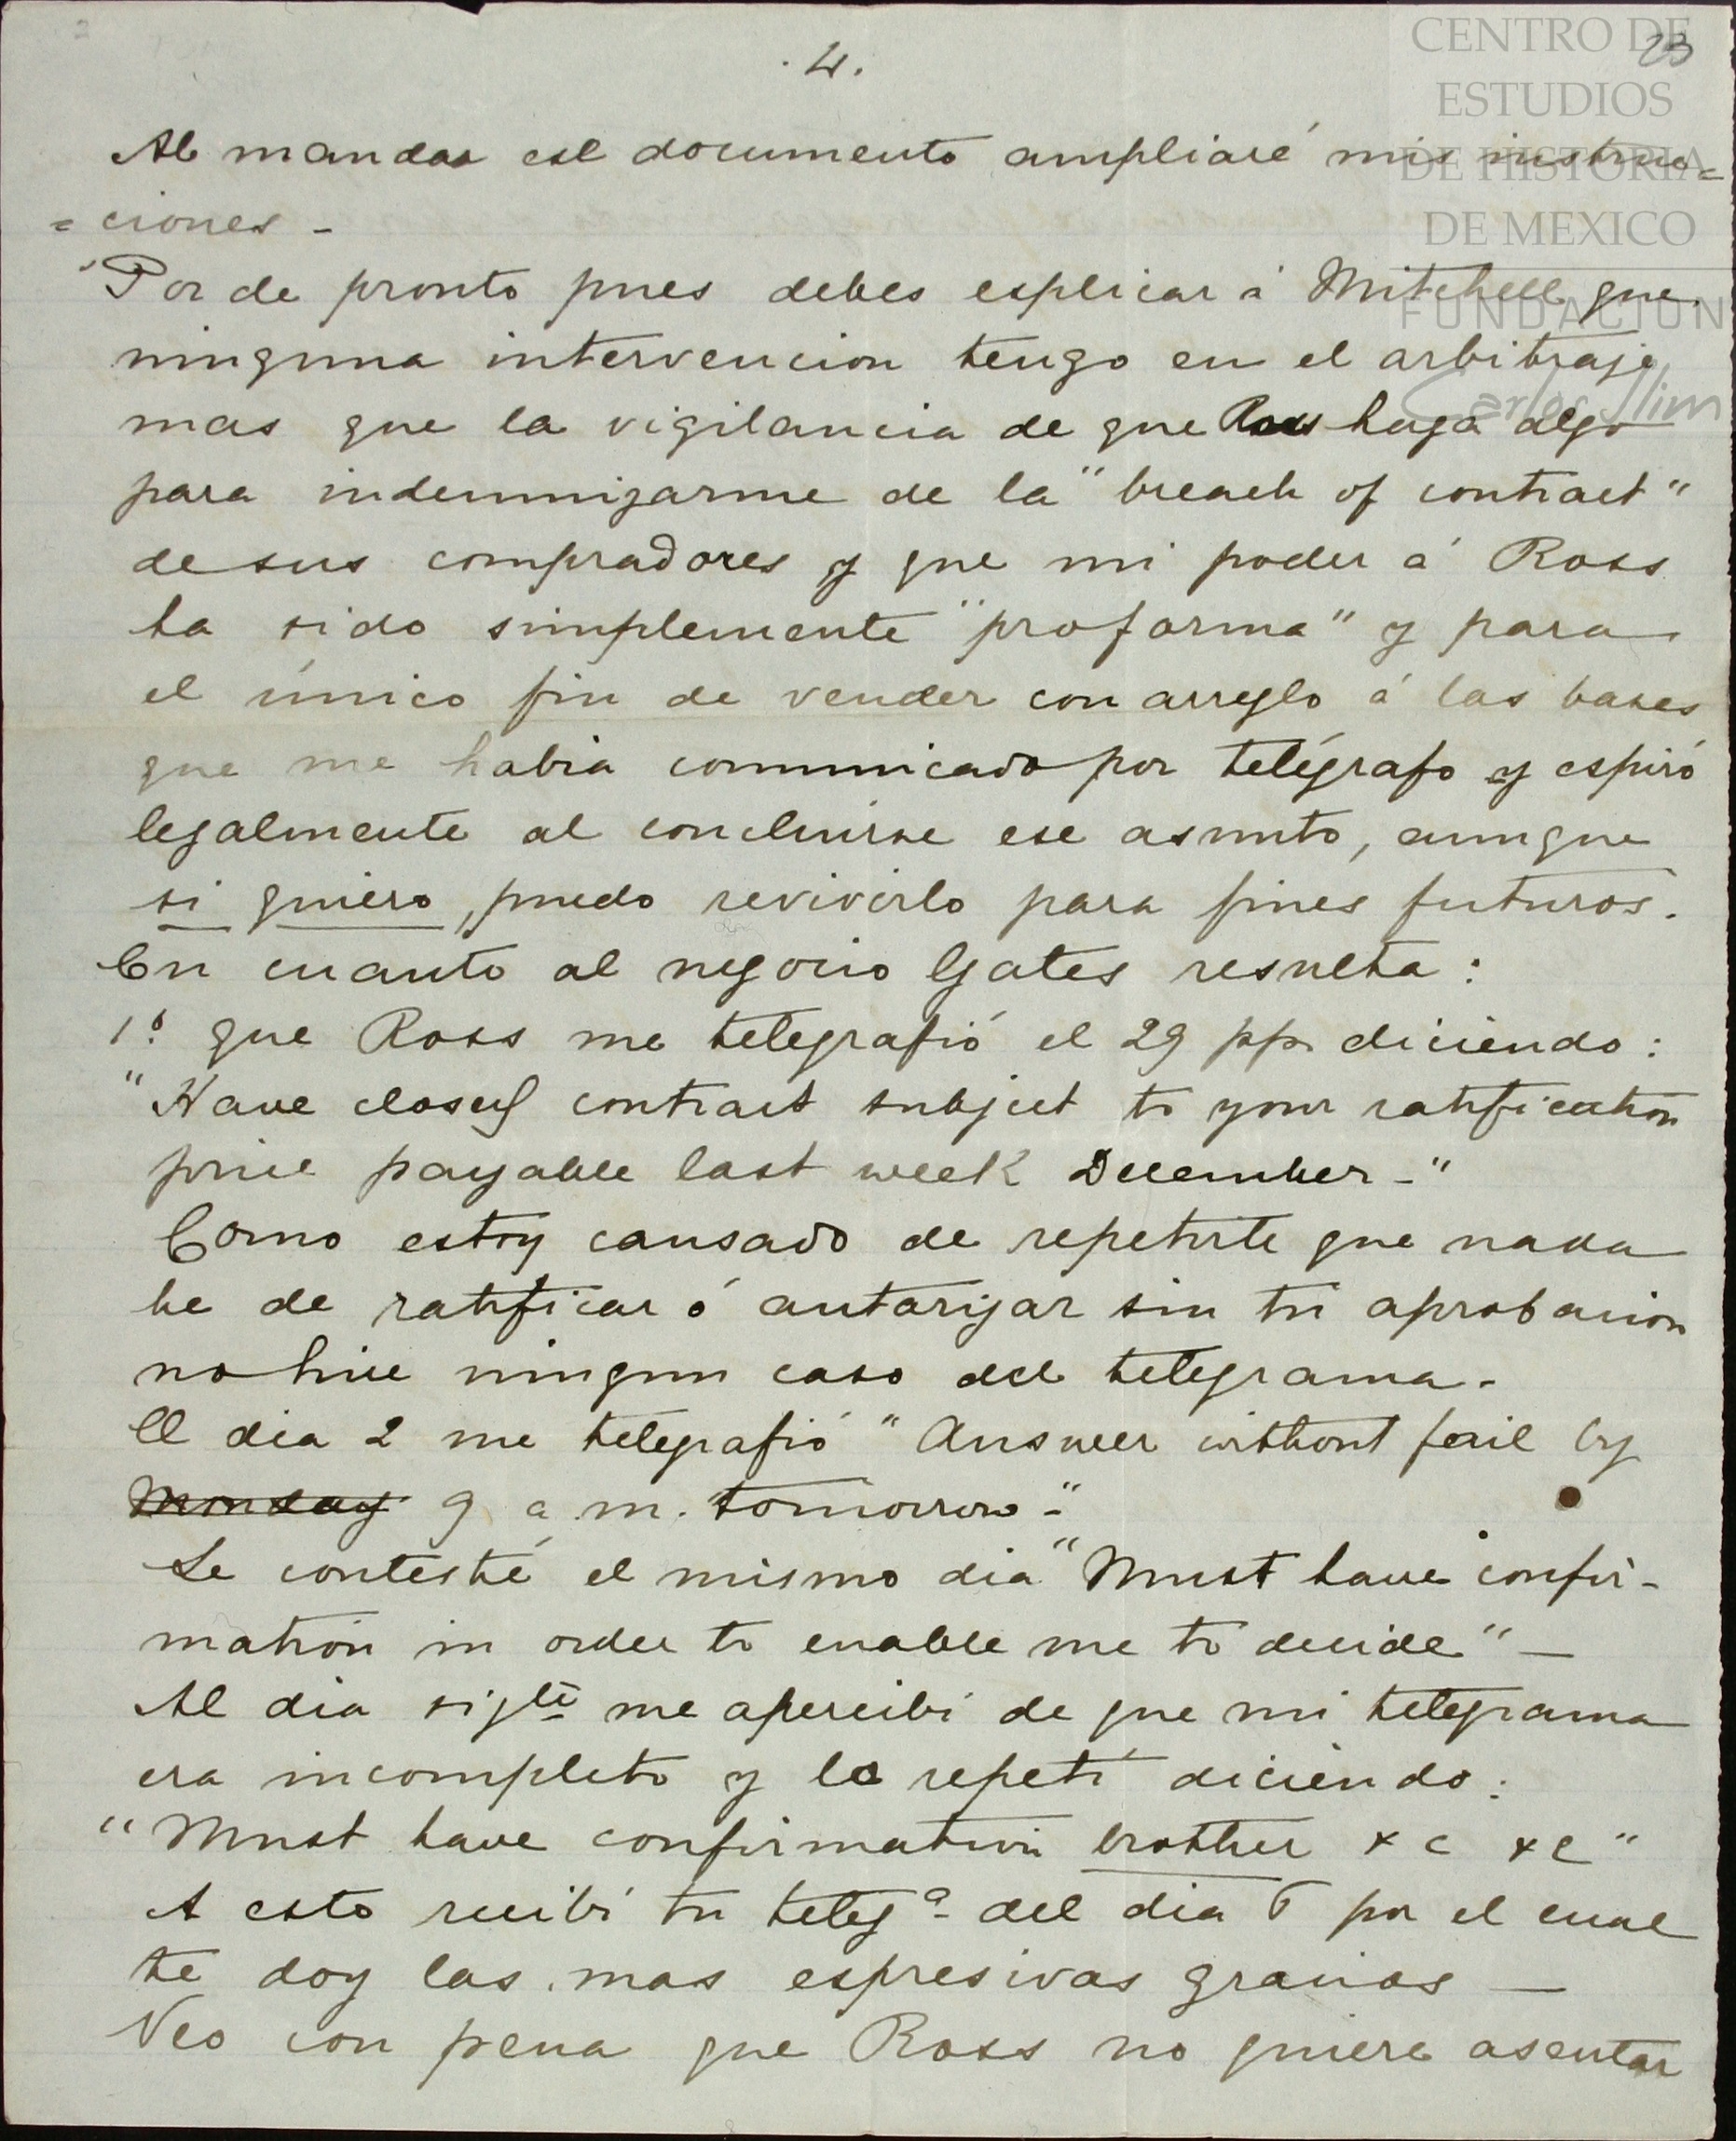 .4.
23
CENTRO DE
ESTUDIOS
DE HISTORIA
DE MEXICO
FUNDACION
Carlos Slim
Al mandar esl documento ampliaré mis instruc=
=ciones -
Por de pronto pues debes esplicar á Mitchell que
ninguna intervencion tengo en el arbitraje
mas que la vigilancia de que Ross haga algo
para indemnizarme de la "breach of contract"
de sus compradores y que mi poder á Ross
ha sido simplemente "proforma" y para
el único fin de vender con arreglo á las bases
que me habia comunicado por telégrafo y espiró
legalmente al concluirse ese asunto, aunque
si quiero, puedo revivirlo para fines futuros.
En cuanto al negocio Gates resulta:
1º que Ross me telegrafió el 29 pp. diciendo:
"Have closed contract subject to your ratification
price payable last week December -"
Como estoy cansado de repetirte que nada
he de ratificar ó autorizar sin tu aprobacion
no hice ningun caso del telegrama.
El dia 2 me telegrafió "Answer without fail by
Monday 9 a.m. tomorrow -"
Le contesté el mismo dia "Must have confir-
mation in order to enable me to decide" —
Al dia sigte me apercibi de que mi telegrama
era incompleto y lo repetí diciendo:
"Must have confirmation brother &c &c"
A esto recibi tu telega del dia 6 por el cual
te doy las mas espresivas gracias —
Veo con pena que Ross no quiere asentar